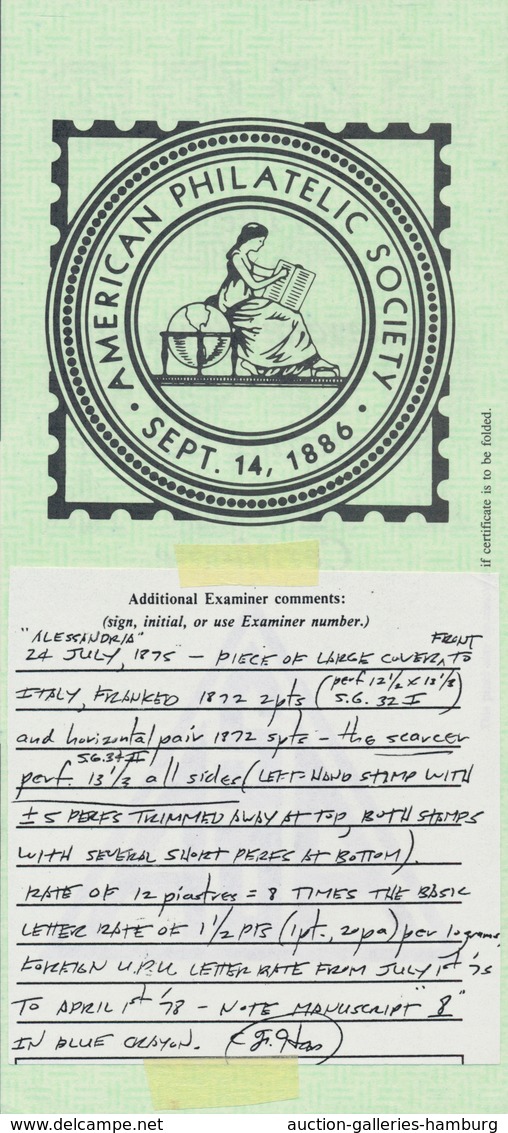 AMERICAN PHILATELIC SOCIETY
• SEPT. 14, 1886 •
if certificate is to be folded.
Additional Examiner comments:
(sign, initial, or use Examiner number.)
"ALESSANDRIA" FRONT
24 JULY, 1875 – PIECE OF LARGE COVER ^ TO
ITALY, FRANKED 1872 2pts (perf 12 1/2 x 13 1/3) S.G. 32 I
and horizontal pair 1872 5pts – the scarcer
S.G. 34 II
perf. 13 1/3 all sides (LEFT-HAND STAMP WITH
± 5 PERFS TRIMMED AWAY AT TOP, BOTH STAMPS
WITH SEVERAL SHORT PERFS AT BOTTOM).
RATE OF 12 piastres = 8 TIMES THE BASIC
LETTER RATE OF 1 1/2 PTS (1pt., 20pa) per 10 grams,
FOREIGN U.P.U. LETTER RATE FROM JULY 1st '75
TO APRIL 1st '78 – NOTE MANUSCRIPT "8"
IN BLUE CRAYON.
www.delcampe.net
auction-galleries-hamburg